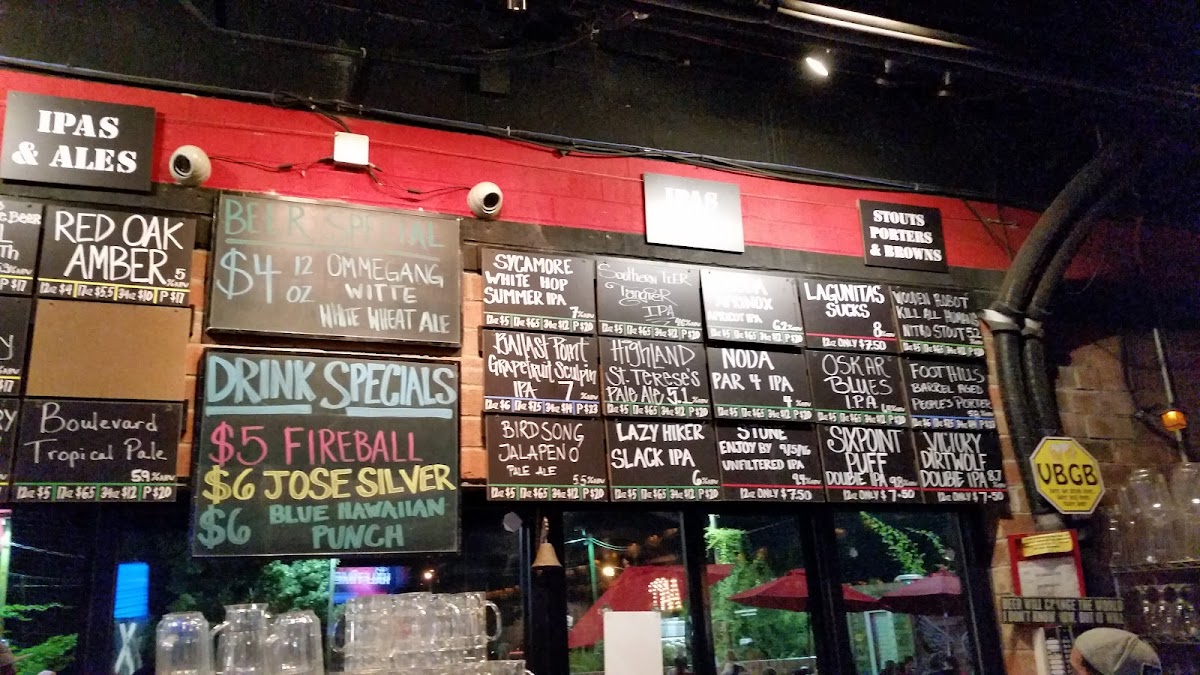 IPAS
& ALES
RED OAK
AMBER
5
%ABV
12oz $4 17oz $5.5 34oz $10 P $17
Boulevard
Tropical Pale
5.9 %ABV
12oz $5 17oz $6.5 34oz $12 P $20
BEER SPECIAL
$4 12 OZ OMMEGANG
WITTE
WHITE WHEAT ALE
DRINK SPECIALS
$5 FIREBALL
$6 JOSE SILVER
$6 BLUE HAWAIIAN
PUNCH
IPAS
STOUTS
PORTERS
& BROWNS
SYCAMORE
WHITE HOP
SUMMER IPA
7 %ABV
12oz $5 17oz $6.5 34oz $12 P $20
SOUTHERN TIER
IPA
12oz $5 17oz $6.5 34oz $12 P $20
APRICOT IPA
6.2 %ABV
12oz $5 17oz $6.5 34oz $12 P $20
LAGUNITAS
SUCKS
8 %ABV
12oz ONLY $7.50
WOODEN ROBOT
KILL ALL HUMANS
NITRO STOUT 5.2
BALLAST POINT
Grapefruit Sculpin
IPA 7 %ABV
12oz $6 17oz $7.5 34oz $14 P $23
HIGHLAND
St. Terese's
Pale Ale 5.1 %ABV
12oz $5 17oz $6.5 34oz $12 P $20
NODA
PAR 4 IPA
4 %ABV
12oz $5 17oz $6.5 34oz $12 P $20
OSKAR
BLUES
IPA
12oz $5 17oz $6.5 34oz $12 P $20
FOOTHILLS
BARREL AGED
PEOPLE'S PORTER
BIRDSONG
JALAPENO
PALE ALE
5.5 %ABV
12oz $5 17oz $6.5 34oz $12 P $20
LAZY HIKER
SLACK IPA
6 %ABV
12oz $5 17oz $6.5 34oz $12 P $20
STONE
ENJOY BY 9/5/16
UNFILTERED IPA
12oz ONLY $7.50
SIXPOINT
PUFF
DOUBLE IPA 9.8 %ABV
12oz ONLY $7.50
VICTORY
DIRTWOLF
DOUBLE IPA 8.7
12oz ONLY $7.50
VBGB
BEER WILL CHANGE THE WORLD